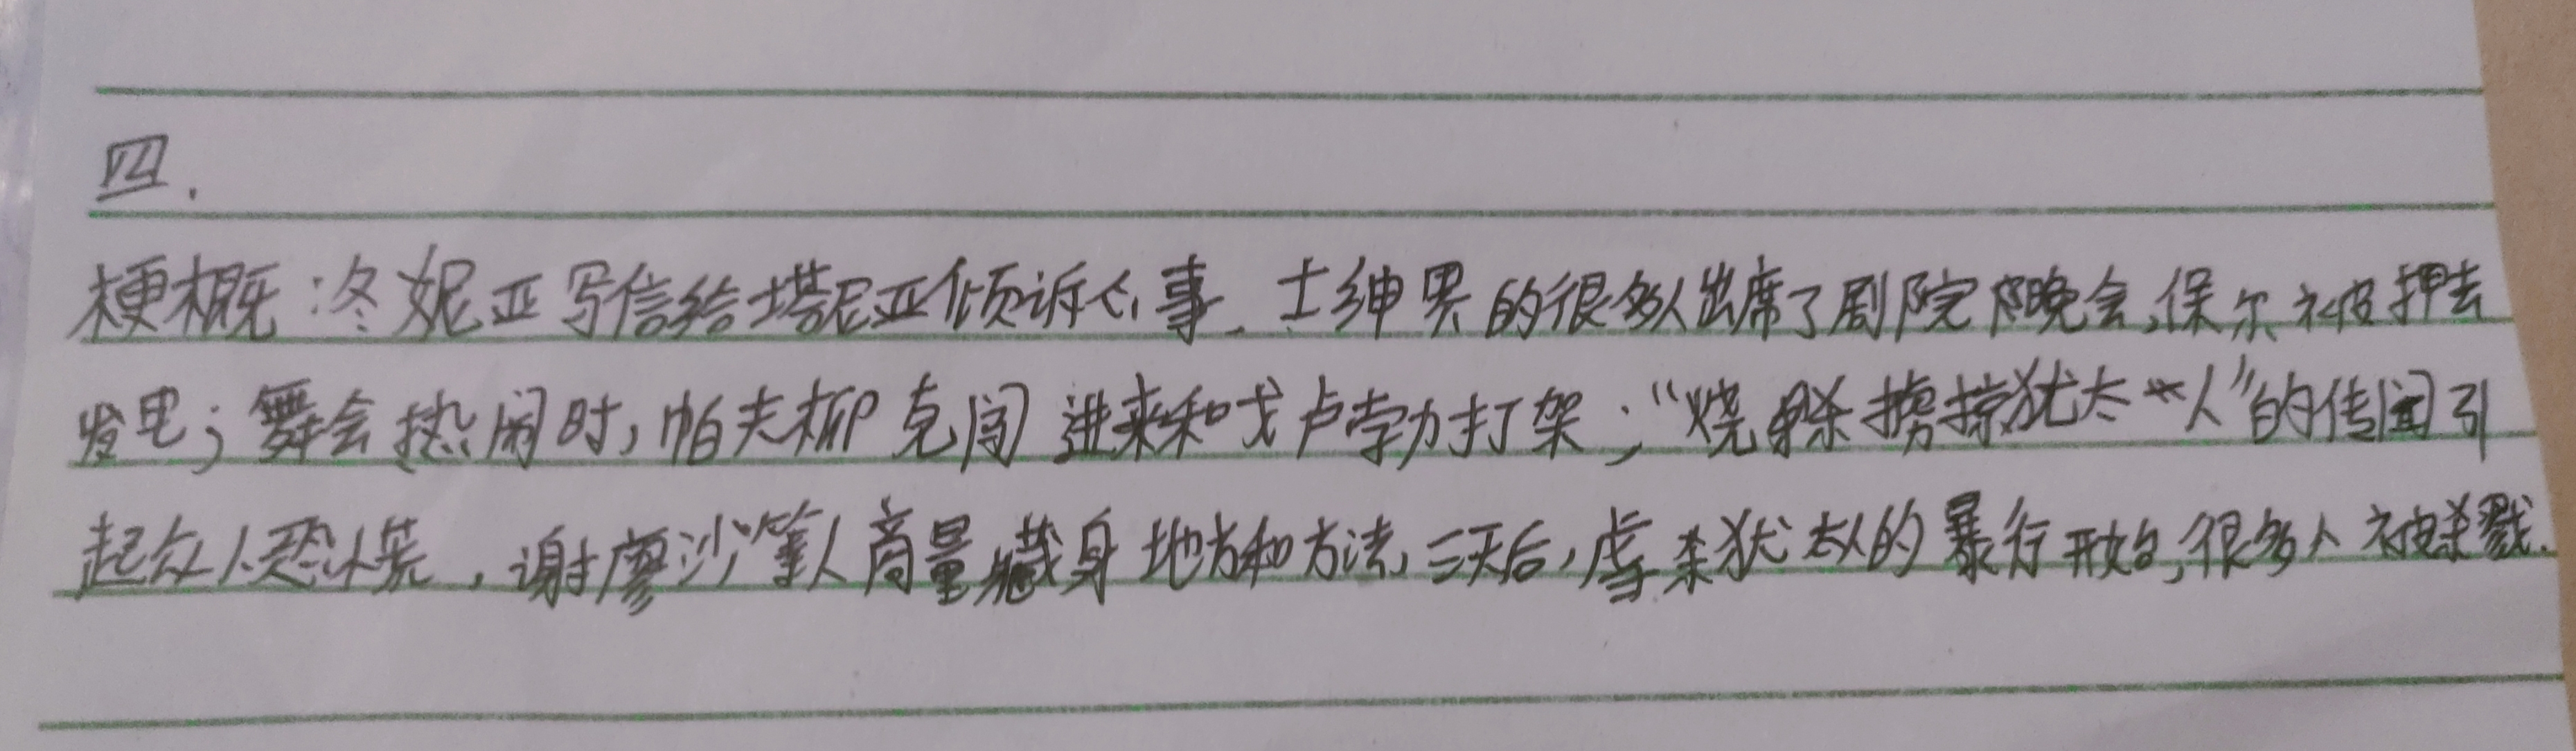 四.
梗概:冬妮亚写信给塔尼亚倾诉心事.士绅界的很多人出席了剧院晚会,保尔被押去
发电;舞会热闹时,帕夫柳克闯进来和戈卢勃力打架;“烧杀掳掠犹太人”的传闻引
起众人恐慌,谢廖沙等人商量藏身地方和方法,三天后,虐杀犹太人的暴行开始,很多人被杀戮.